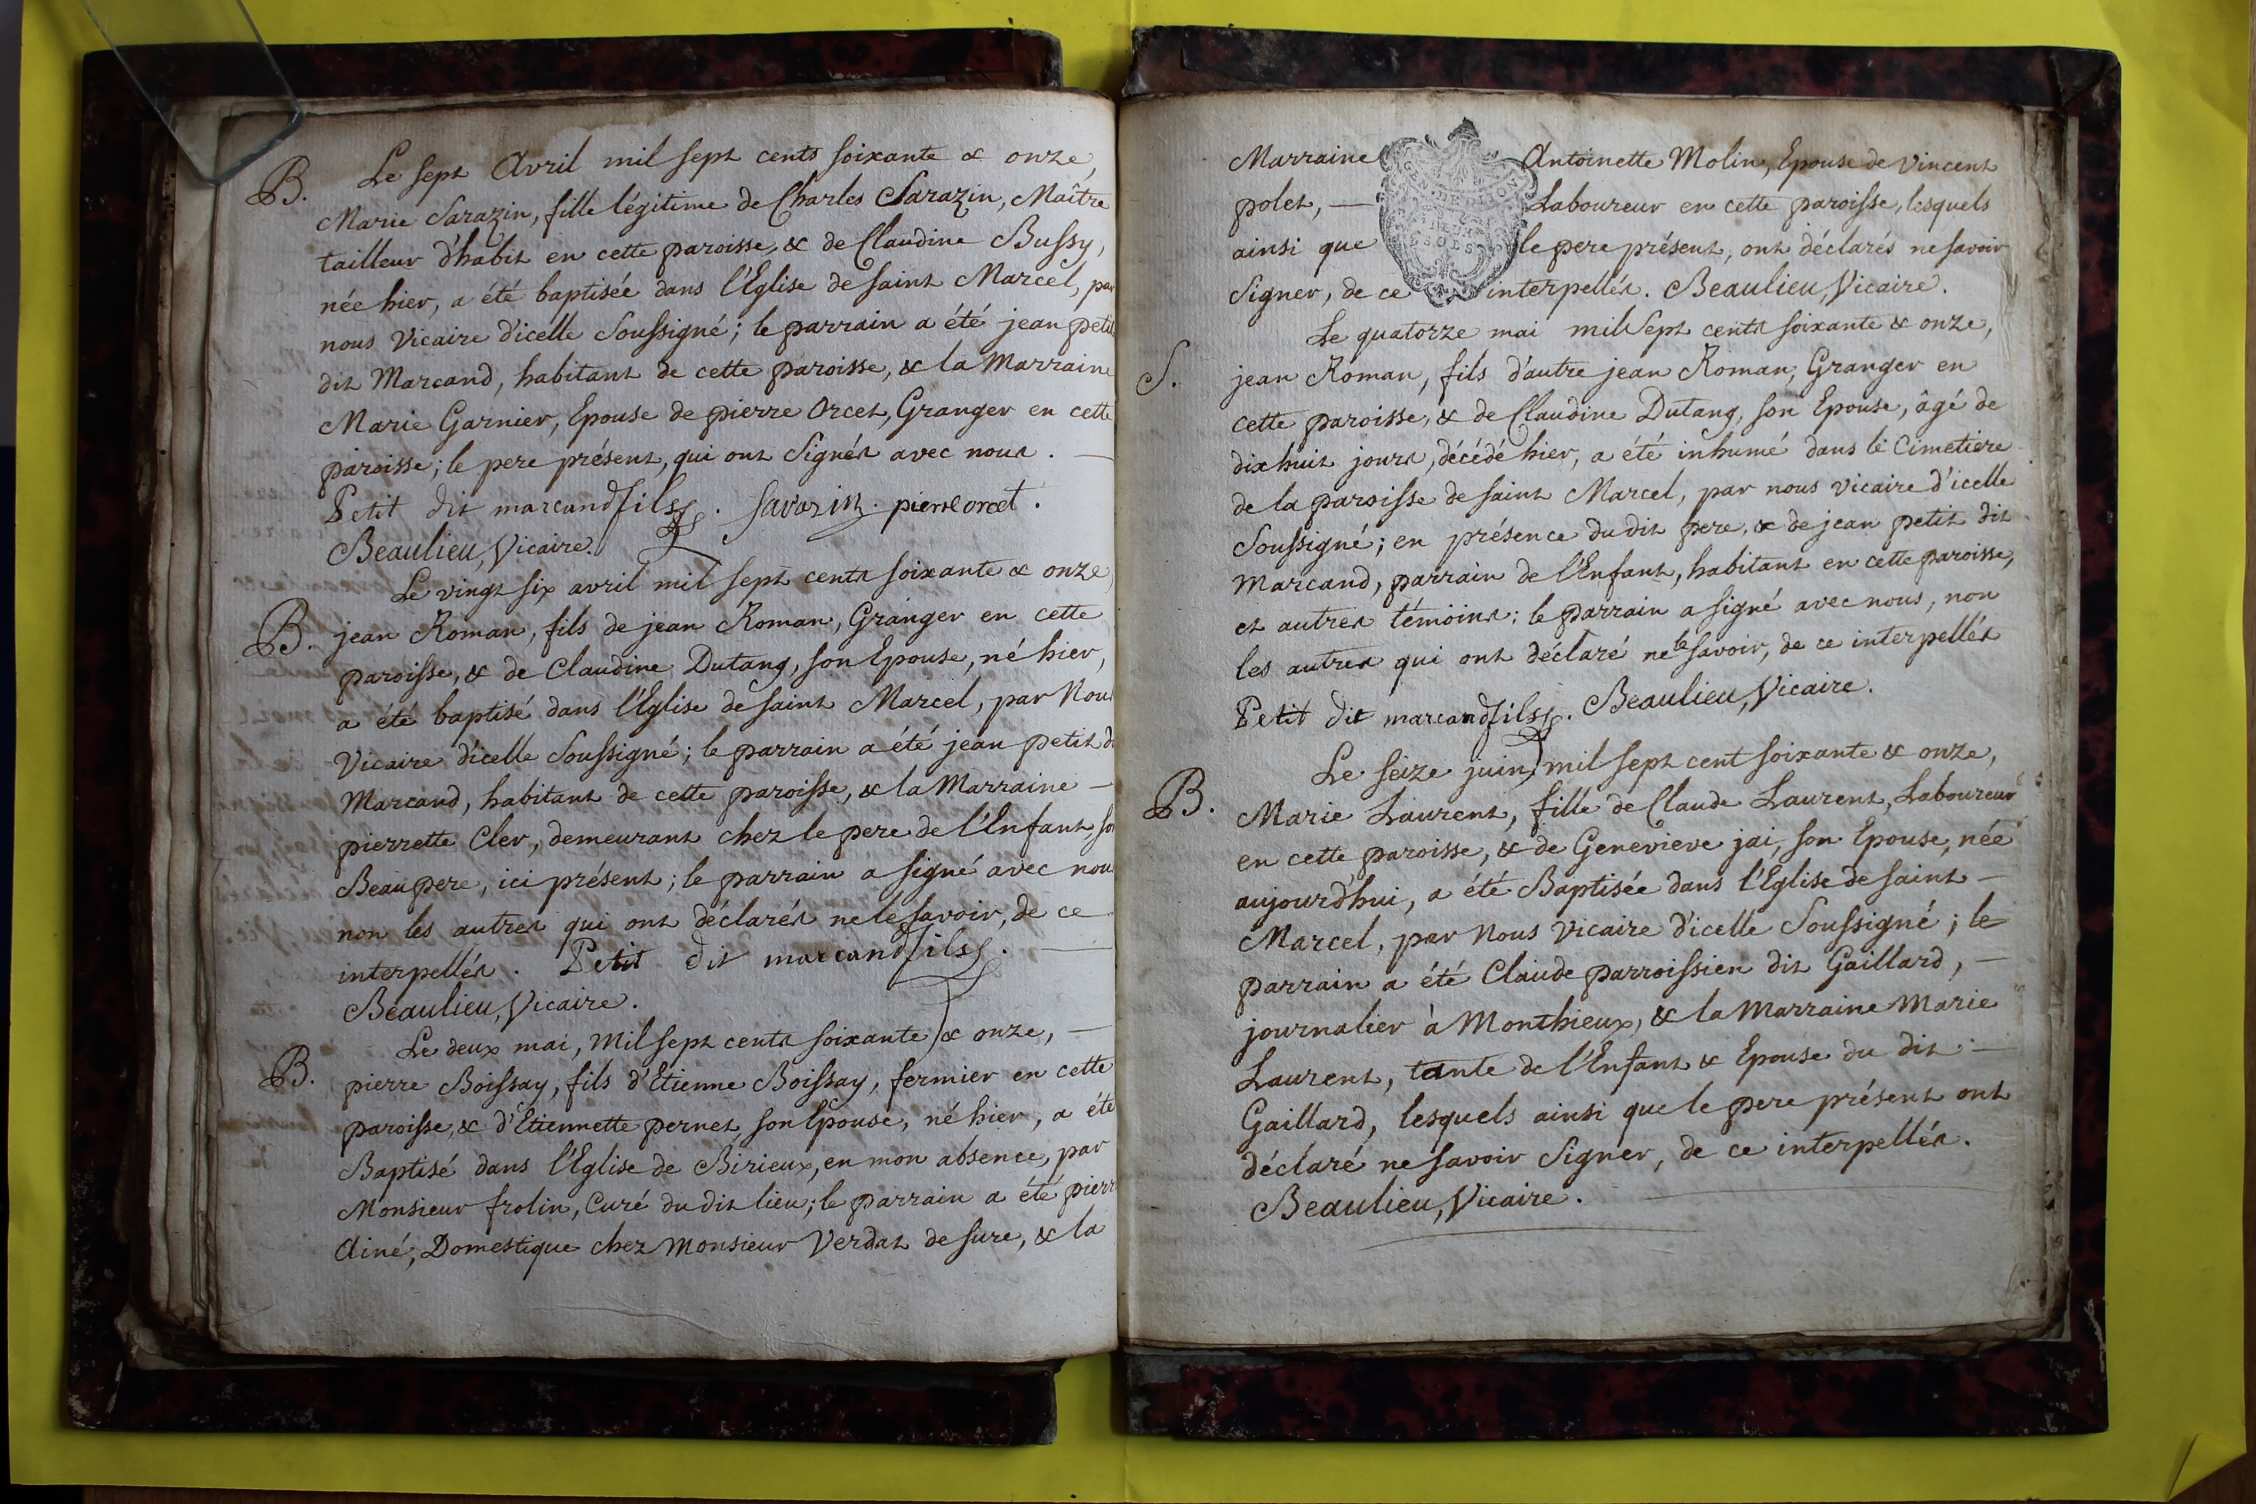 B. Le sept Avril mil sept cents soixante & onze,
Marie Sarazin, fille légitime de Charles Sarazin, Maître
tailleur d'habit en cette paroisse, & de Claudine Bussy,
née hier, a été baptisée dans l'Eglise de saint Marcel, par
nous Vicaire d'icelle Soussigné; le parrain a été jean petit
dit Marcand, habitant de cette paroisse, & la Marraine
Marie Garnier, Epouse de pierre Orcet, Granger en cette
paroisse; le pere présent, qui ont Signés avec nous. —
Petit dit marcand fils. Sarazin. pierre orcet.
Beaulieu, Vicaire.
Le vingt six avril mil sept cents soixante & onze,
B. jean Roman, fils de jean Roman, Granger en cette
paroisse, & de Claudine Dutang, son Epouse, né hier,
a été baptisé dans l'Eglise de saint Marcel, par Nous
Vicaire d'icelle Soussigné; le parrain a été jean petit di
Marcand, habitant de cette paroisse, & la Marraine —
pierrette Cler, demeurant chez le pere de l'Enfant son
Beaupere, ici présent; le parrain a signé avec nou
non les autres qui ont déclarés ne le savoir, de ce
interpellés. Petit dit marcand fils. —
Beaulieu, Vicaire.
Le deux mai, mil sept cents soixante & onze, —
B. pierre Boissay, fils d'Etienne Boissay, fermier en cette
paroisse, & d'Etiennette pernet son Epouse, né hier, a été
Baptisé dans l'Eglise de Birieux, en mon absence, par
Monsieur frolin, Curé du dit lieu; le parrain a été pierre
Ainé, Domestique chez Monsieur Verdat de sure, & la
Marraine Antoinette Molin, Epouse de Vincent
polet, — Laboureur en cette paroisse, lesquels
ainsi que le pere présent, ont déclarés ne savoir
Signer, de ce interpellés. Beaulieu, Vicaire.
GEN DE LYON
DEUX
SOLS
Le quatorze mai mil sept cents soixante & onze,
S. jean Roman, fils d'autre jean Roman, Granger en
cette paroisse, & de Claudine Dutang, son Epouse, âgé de
dixhuit jours, décédé hier, a été inhumé dans le Cimetiere
de la paroisse de saint Marcel, par nous vicaire d'icelle
Soussigné; en présence du dit pere, & de jean petit dit
Marcand, parrain de l'Enfant, habitant en cette paroisse,
et autres témoins: le parrain a signé avec nous, non
les autres qui ont déclaré ne le savoir, de ce interpellés
Petit dit marcand fils. Beaulieu, Vicaire.
Le seize juin, mil sept cent soixante & onze,
B. Marie Laurent, fille de Claude Laurent, Laboureur
en cette paroisse, & de Genevieve jai, son Epouse, née
aujourd'hui, a été Baptisée dans l'Eglise de saint —
Marcel, par Nous Vicaire d'icelle Soussigné; le
parrain a été Claude parroissien dit Gaillard, —
journalier à Monthieux, & la Marraine Marie
Laurent, tante de l'Enfant & Epouse du dit —
Gaillard, lesquels ainsi que le pere présent ont
déclaré ne savoir Signer, de ce interpellés.
Beaulieu, Vicaire.